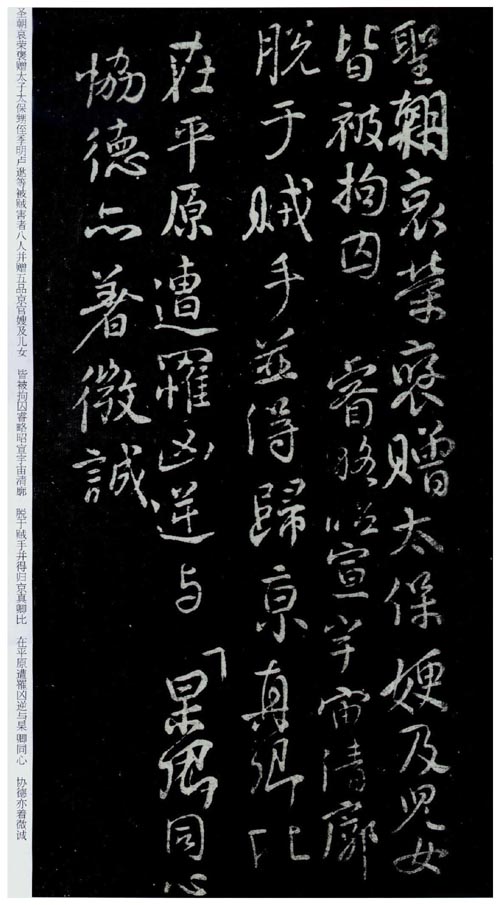 聖朝哀榮褒贈太保嫂及兒女
皆被拘囚 睿略昭宣宇宙清廓
脱于賊手並得歸京真卿比
在平原遭罹凶逆与 杲卿同心
協德亦著微誠
圣朝哀荣褒赠太子太保甥侄季明卢逖等被贼害者八人并赠五品京官嫂及儿女 皆被拘囚睿略昭宣宇宙清廓 脱于贼手并得归京真卿比 在平原遭罹凶逆与杲卿同心 协德亦着微诚